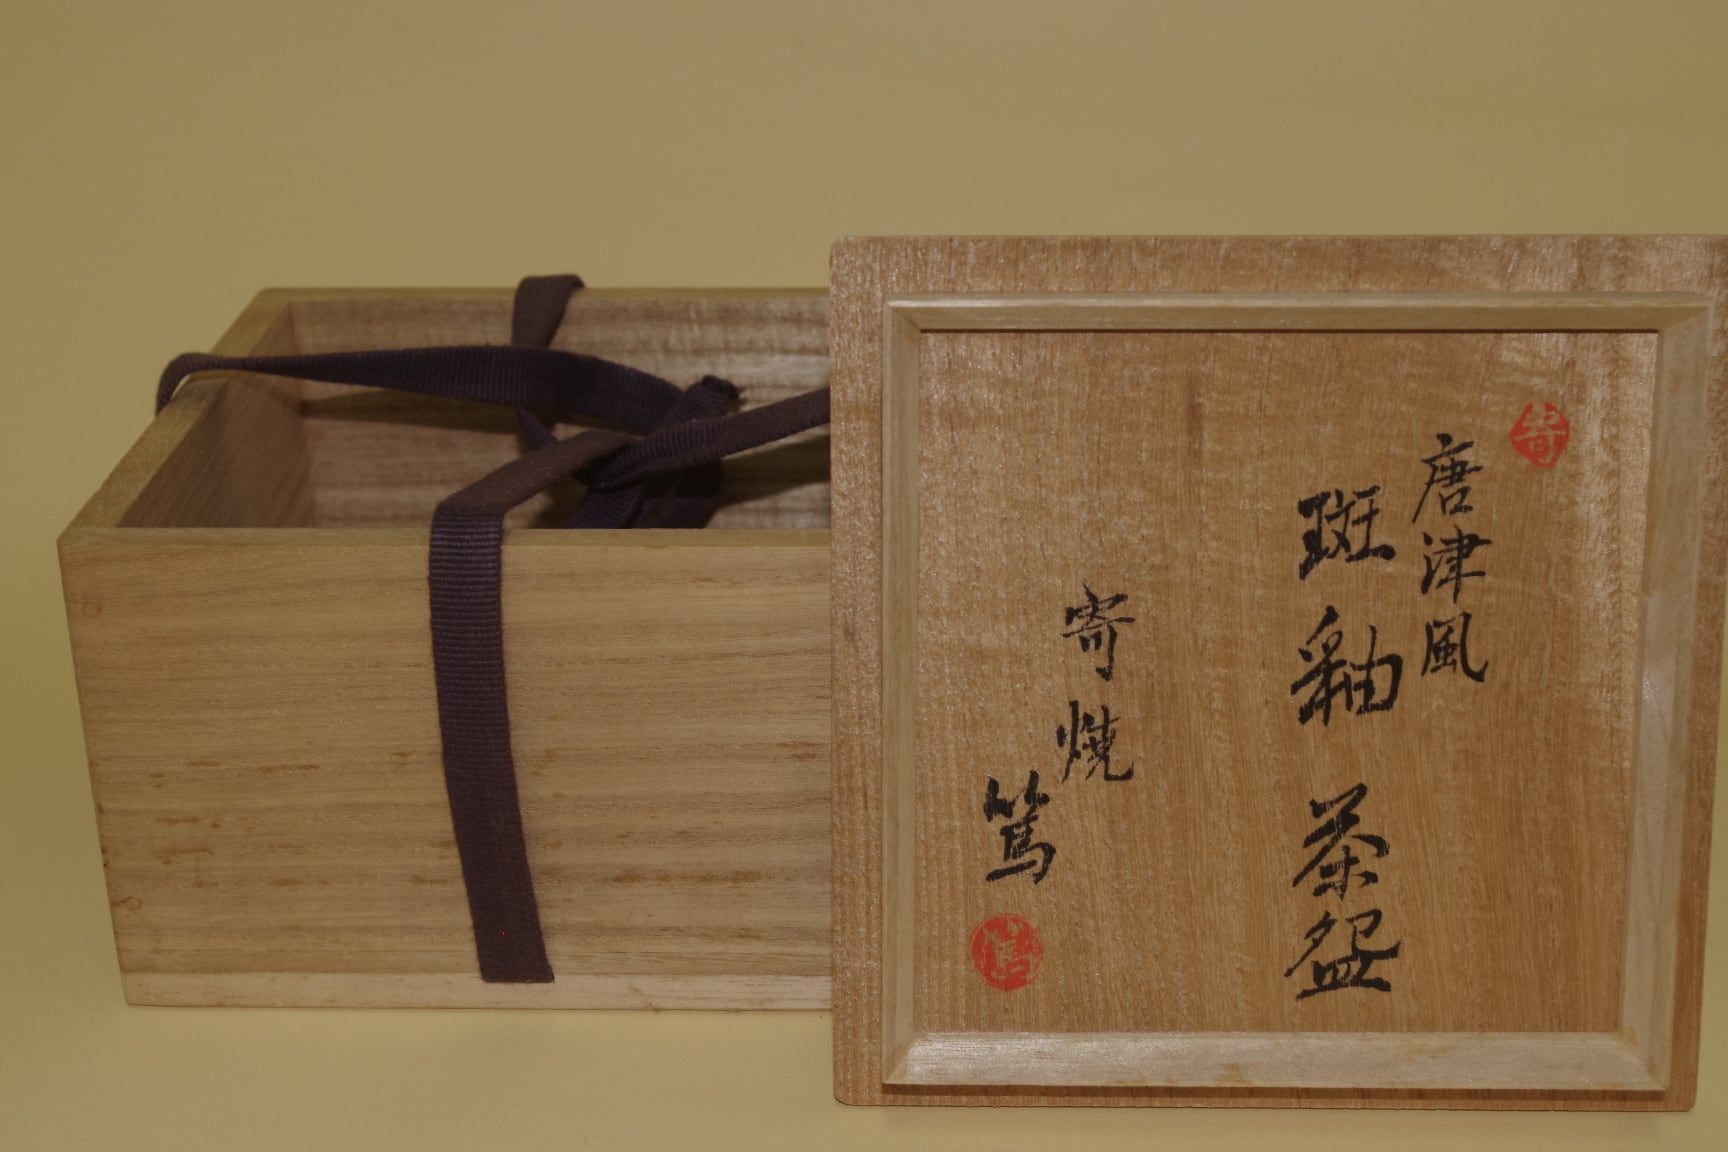 唐津風
斑釉茶盌
寄焼
篤